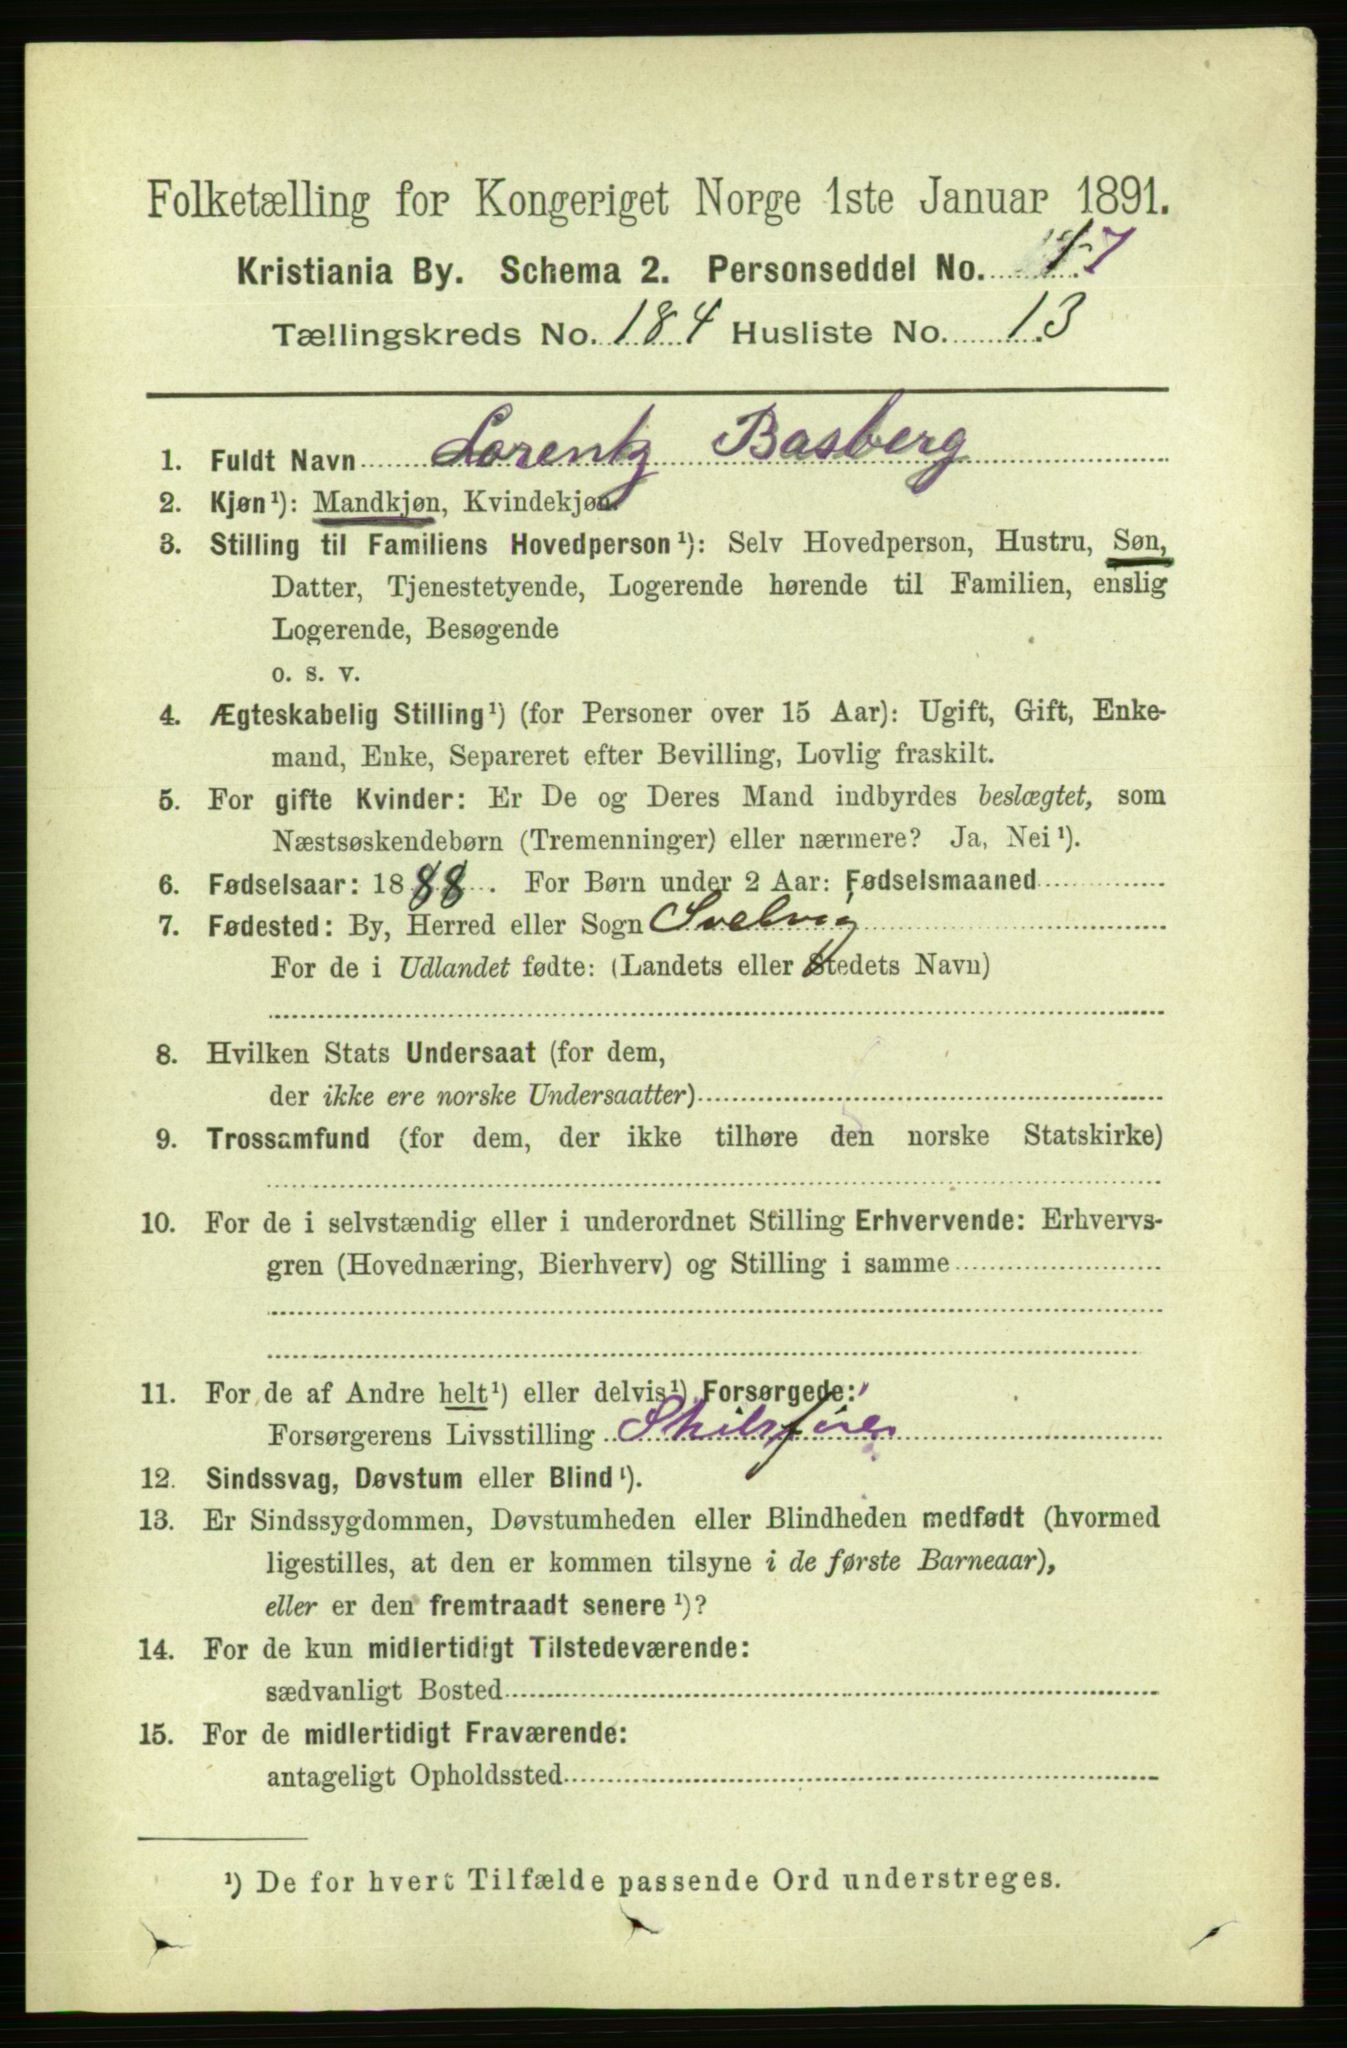 Folketælling for Kongeriget Norge 1ste Januar 1891.
Kristiania By. Schema 2. Personseddel No.
Tællingskreds No. 184 Husliste No. 13
1. Fuldt Navn Lorentz Basberg
2. Kjøn¹): Mandkjøn, Kvindekjøn.
3. Stilling til Familiens Hovedperson¹): Selv Hovedperson, Hustru, Søn,
Datter, Tjenestetyende, Logerende hørende til Familien, enslig
Logerende, Besøgende
o. s. v.
4. Ægteskabelig Stilling¹) (for Personer over 15 Aar): Ugift, Gift, Enke-
mand, Enke, Separeret efter Bevilling, Lovlig fraskilt.
5. For gifte Kvinder: Er De og Deres Mand indbyrdes beslægtet, som
Næstsøskendebørn (Tremenninger) eller nærmere? Ja, Nei¹).
6. Fødselsaar: 1888. For Børn under 2 Aar: Fødselsmaaned
7. Fødested: By, Herred eller Sogn Svelvig
For de i Udlandet fødte: (Landets eller Stedets Navn)
8. Hvilken Stats Undersaat (for dem,
der ikke ere norske Undersaatter)
9. Trossamfund (for dem, der ikke tilhøre den norske Statskirke)
10. For de i selvstændig eller i underordnet Stilling Erhvervende: Erhvervs-
gren (Hovednæring, Bierhverv) og Stilling i samme
11. For de af Andre helt¹) eller delvis¹) Forsørgede:
Forsørgerens Livsstilling Skibsfører
12. Sindssvag, Døvstum eller Blind¹).
13. Er Sindssygdommen, Døvstumheden eller Blindheden medfødt (hvormed
ligestilles, at den er kommen tilsyne i de første Barneaar),
eller er den fremtraadt senere¹)?
14. For de kun midlertidigt Tilstedeværende:
sædvanligt Bosted
15. For de midlertidigt Fraværende:
antageligt Opholdssted
¹) De for hvert Tilfælde passende Ord understreges.